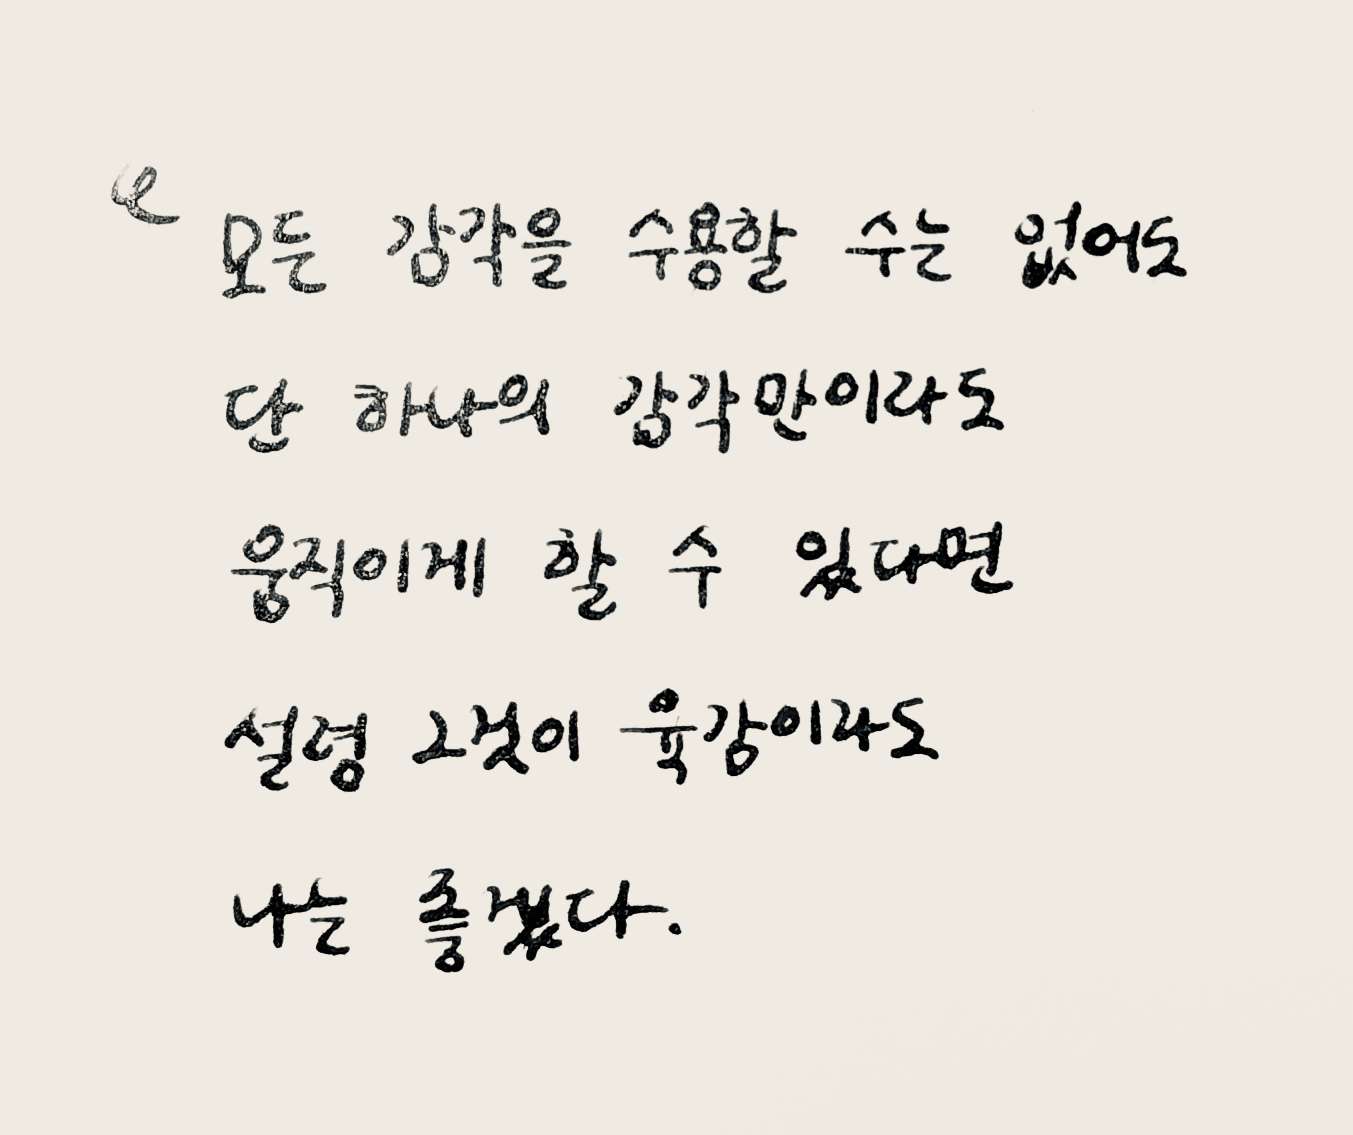 모든 감각을 수용할 수는 없어도
단 하나의 감각만이라도
움직이게 할 수 있다면
설령 그것이 육감이라도
나는 좋겠다.